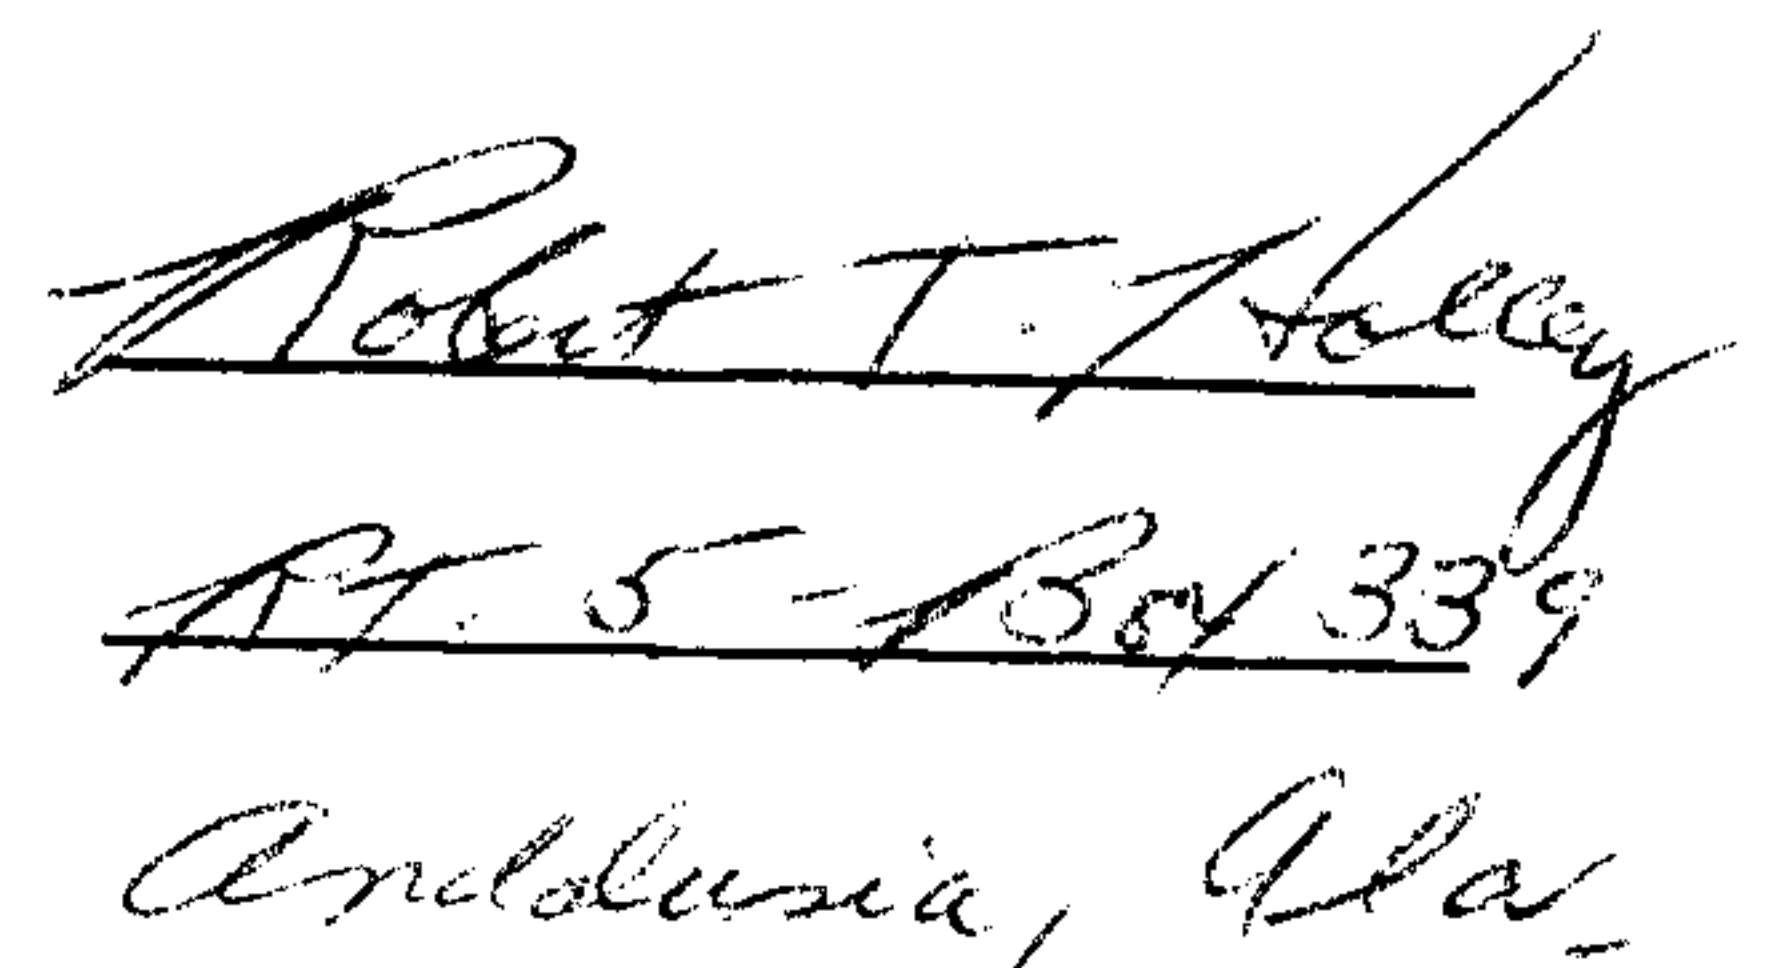 Robert T. Holley
RT. 5 - Box 339
Andalusia, Ala.